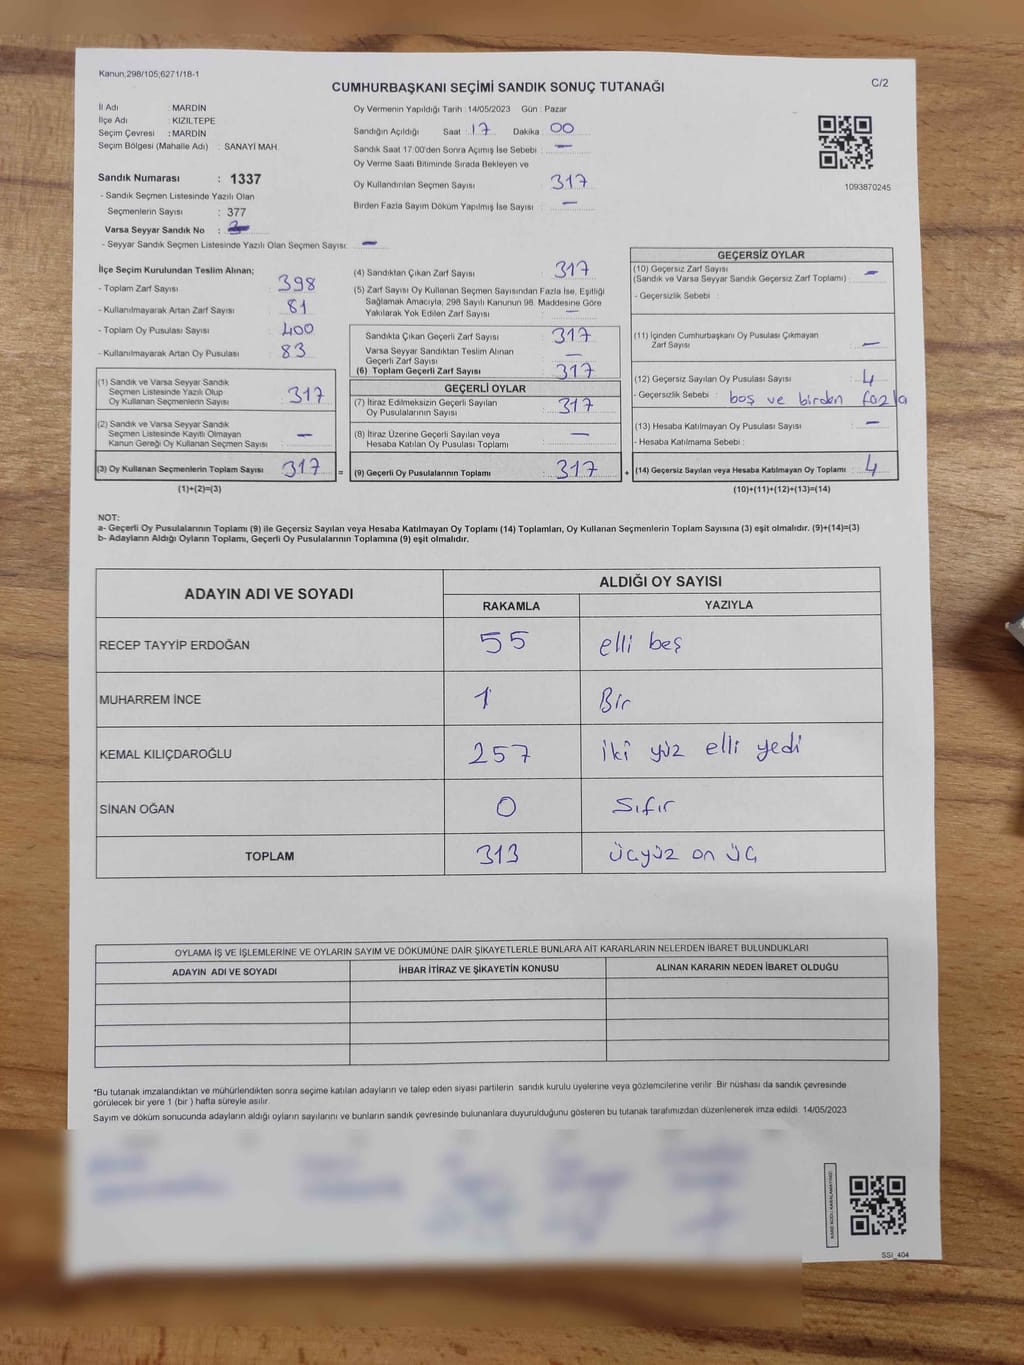 Kanun;298/105;6271/18-1
CUMHURBAŞKANI SEÇİMİ SANDIK SONUÇ TUTANAĞI
C/2
İl Adı : MARDİN
İlçe Adı : KIZILTEPE
Seçim Çevresi : MARDİN
Seçim Bölgesi (Mahalle Adı) : SANAYİ MAH.
Sandık Numarası : 1337
- Sandık Seçmen Listesinde Yazılı Olan
Seçmenlerin Sayısı : 377
Varsa Seyyar Sandık No :
- Seyyar Sandık Seçmen Listesinde Yazılı Olan Seçmen Sayısı: —
Oy Vermenin Yapıldığı Tarih : 14/05/2023 Gün : Pazar
Sandığın Açıldığı Saat : 17 Dakika : 00
Sandık Saat 17:00'den Sonra Açımış İse Sebebi : —
Oy Verme Saati Bitiminde Sırada Bekleyen ve
Oy Kullandırılan Seçmen Sayısı : 317
Birden Fazla Sayım Döküm Yapılmış İse Sayısı : —
1093870245
İlçe Seçim Kurulundan Teslim Alınan;
- Toplam Zarf Sayısı : 398
- Kullanılmayarak Artan Zarf Sayısı : 81
- Toplam Oy Pusulası Sayısı : 400
- Kullanılmayarak Artan Oy Pusulası : 83
(1) Sandık ve Varsa Seyyar Sandık
Seçmen Listesinde Yazılı Olup
Oy Kullanan Seçmenlerin Sayısı : 317
(2) Sandık ve Varsa Seyyar Sandık
Seçmen Listesinde Kayıtlı Olmayan
Kanun Gereği Oy Kullanan Seçmen Sayısı : —
(3) Oy Kullanan Seçmenlerin Toplam Sayısı : 317 =
(1)+(2)=(3)
(4) Sandıktan Çıkan Zarf Sayısı : 317
(5) Zarf Sayısı Oy Kullanan Seçmen Sayısından Fazla İse, Eşitliği
Sağlamak Amacıyla, 298 Sayılı Kanunun 98. Maddesine Göre
Yakılarak Yok Edilen Zarf Sayısı : —
Sandıkta Çıkan Geçerli Zarf Sayısı : 317
Varsa Seyyar Sandıktan Teslim Alınan
Geçerli Zarf Sayısı : —
(6) Toplam Geçerli Zarf Sayısı : 317
GEÇERLİ OYLAR
(7) İtiraz Edilmeksizin Geçerli Sayılan
Oy Pusulalarının Sayısı : 317
(8) İtiraz Üzerine Geçerli Sayılan veya
Hesaba Katılan Oy Pusulaları Toplamı : —
(9) Geçerli Oy Pusulalarının Toplamı : 317 +
GEÇERSİZ OYLAR
(10) Geçersiz Zarf Sayısı
(Sandık ve Varsa Seyyar Sandık Geçersiz Zarf Toplamı) : —
- Geçersizlik Sebebi :
(11) İçinden Cumhurbaşkanı Oy Pusulası Çıkmayan
Zarf Sayısı : —
(12) Geçersiz Sayılan Oy Pusulası Sayısı : 4
- Geçersizlik Sebebi : boş ve birden fazla
(13) Hesaba Katılmayan Oy Pusulası Sayısı : —
- Hesaba Katılmama Sebebi :
(14) Geçersiz Sayılan veya Hesaba Katılmayan Oy Toplamı : 4
(10)+(11)+(12)+(13)=(14)
NOT:
a- Geçerli Oy Pusulalarının Toplamı (9) ile Geçersiz Sayılan veya Hesaba Katılmayan Oy Toplamı (14) Toplamları, Oy Kullanan Seçmenlerin Toplam Sayısına (3) eşit olmalıdır. (9)+(14)=(3)
b- Adayların Aldığı Oyların Toplamı, Geçerli Oy Pusulalarının Toplamına (9) eşit olmalıdır.
ADAYIN ADI VE SOYADI
ALDIĞI OY SAYISI
RAKAMLA YAZIYLA
RECEP TAYYİP ERDOĞAN 55 elli beş
MUHARREM İNCE 1 Bir
KEMAL KILIÇDAROĞLU 257 iki yüz elli yedi
SİNAN OĞAN 0 Sıfır
TOPLAM 313 üçyüz on üç
OYLAMA İŞ VE İŞLEMLERİNE VE OYLARIN SAYIM VE DÖKÜMÜNE DAİR ŞİKAYETLERLE BUNLARA AİT KARARLARIN NELERDEN İBARET BULUNDUKLARI
ADAYIN ADI VE SOYADI İHBAR İTİRAZ VE ŞİKAYETİN KONUSU ALINAN KARARIN NEDEN İBARET OLDUĞU
*Bu tutanak imzalandıktan ve mühürlendikten sonra seçime katılan adayların ve talep eden siyasi partilerin sandık kurulu üyelerine veya gözlemcilerine verilir. Bir nüshası da sandık çevresinde
görülecek bir yere 1 (bir ) hafta süreyle asılır.
Sayım ve döküm sonucunda adayların aldığı oyların sayılarını ve bunların sandık çevresinde bulunanlara duyurulduğunu gösteren bu tutanak tarafımızdan düzenlenerek imza edildi. 14/05/2023
SSI_404